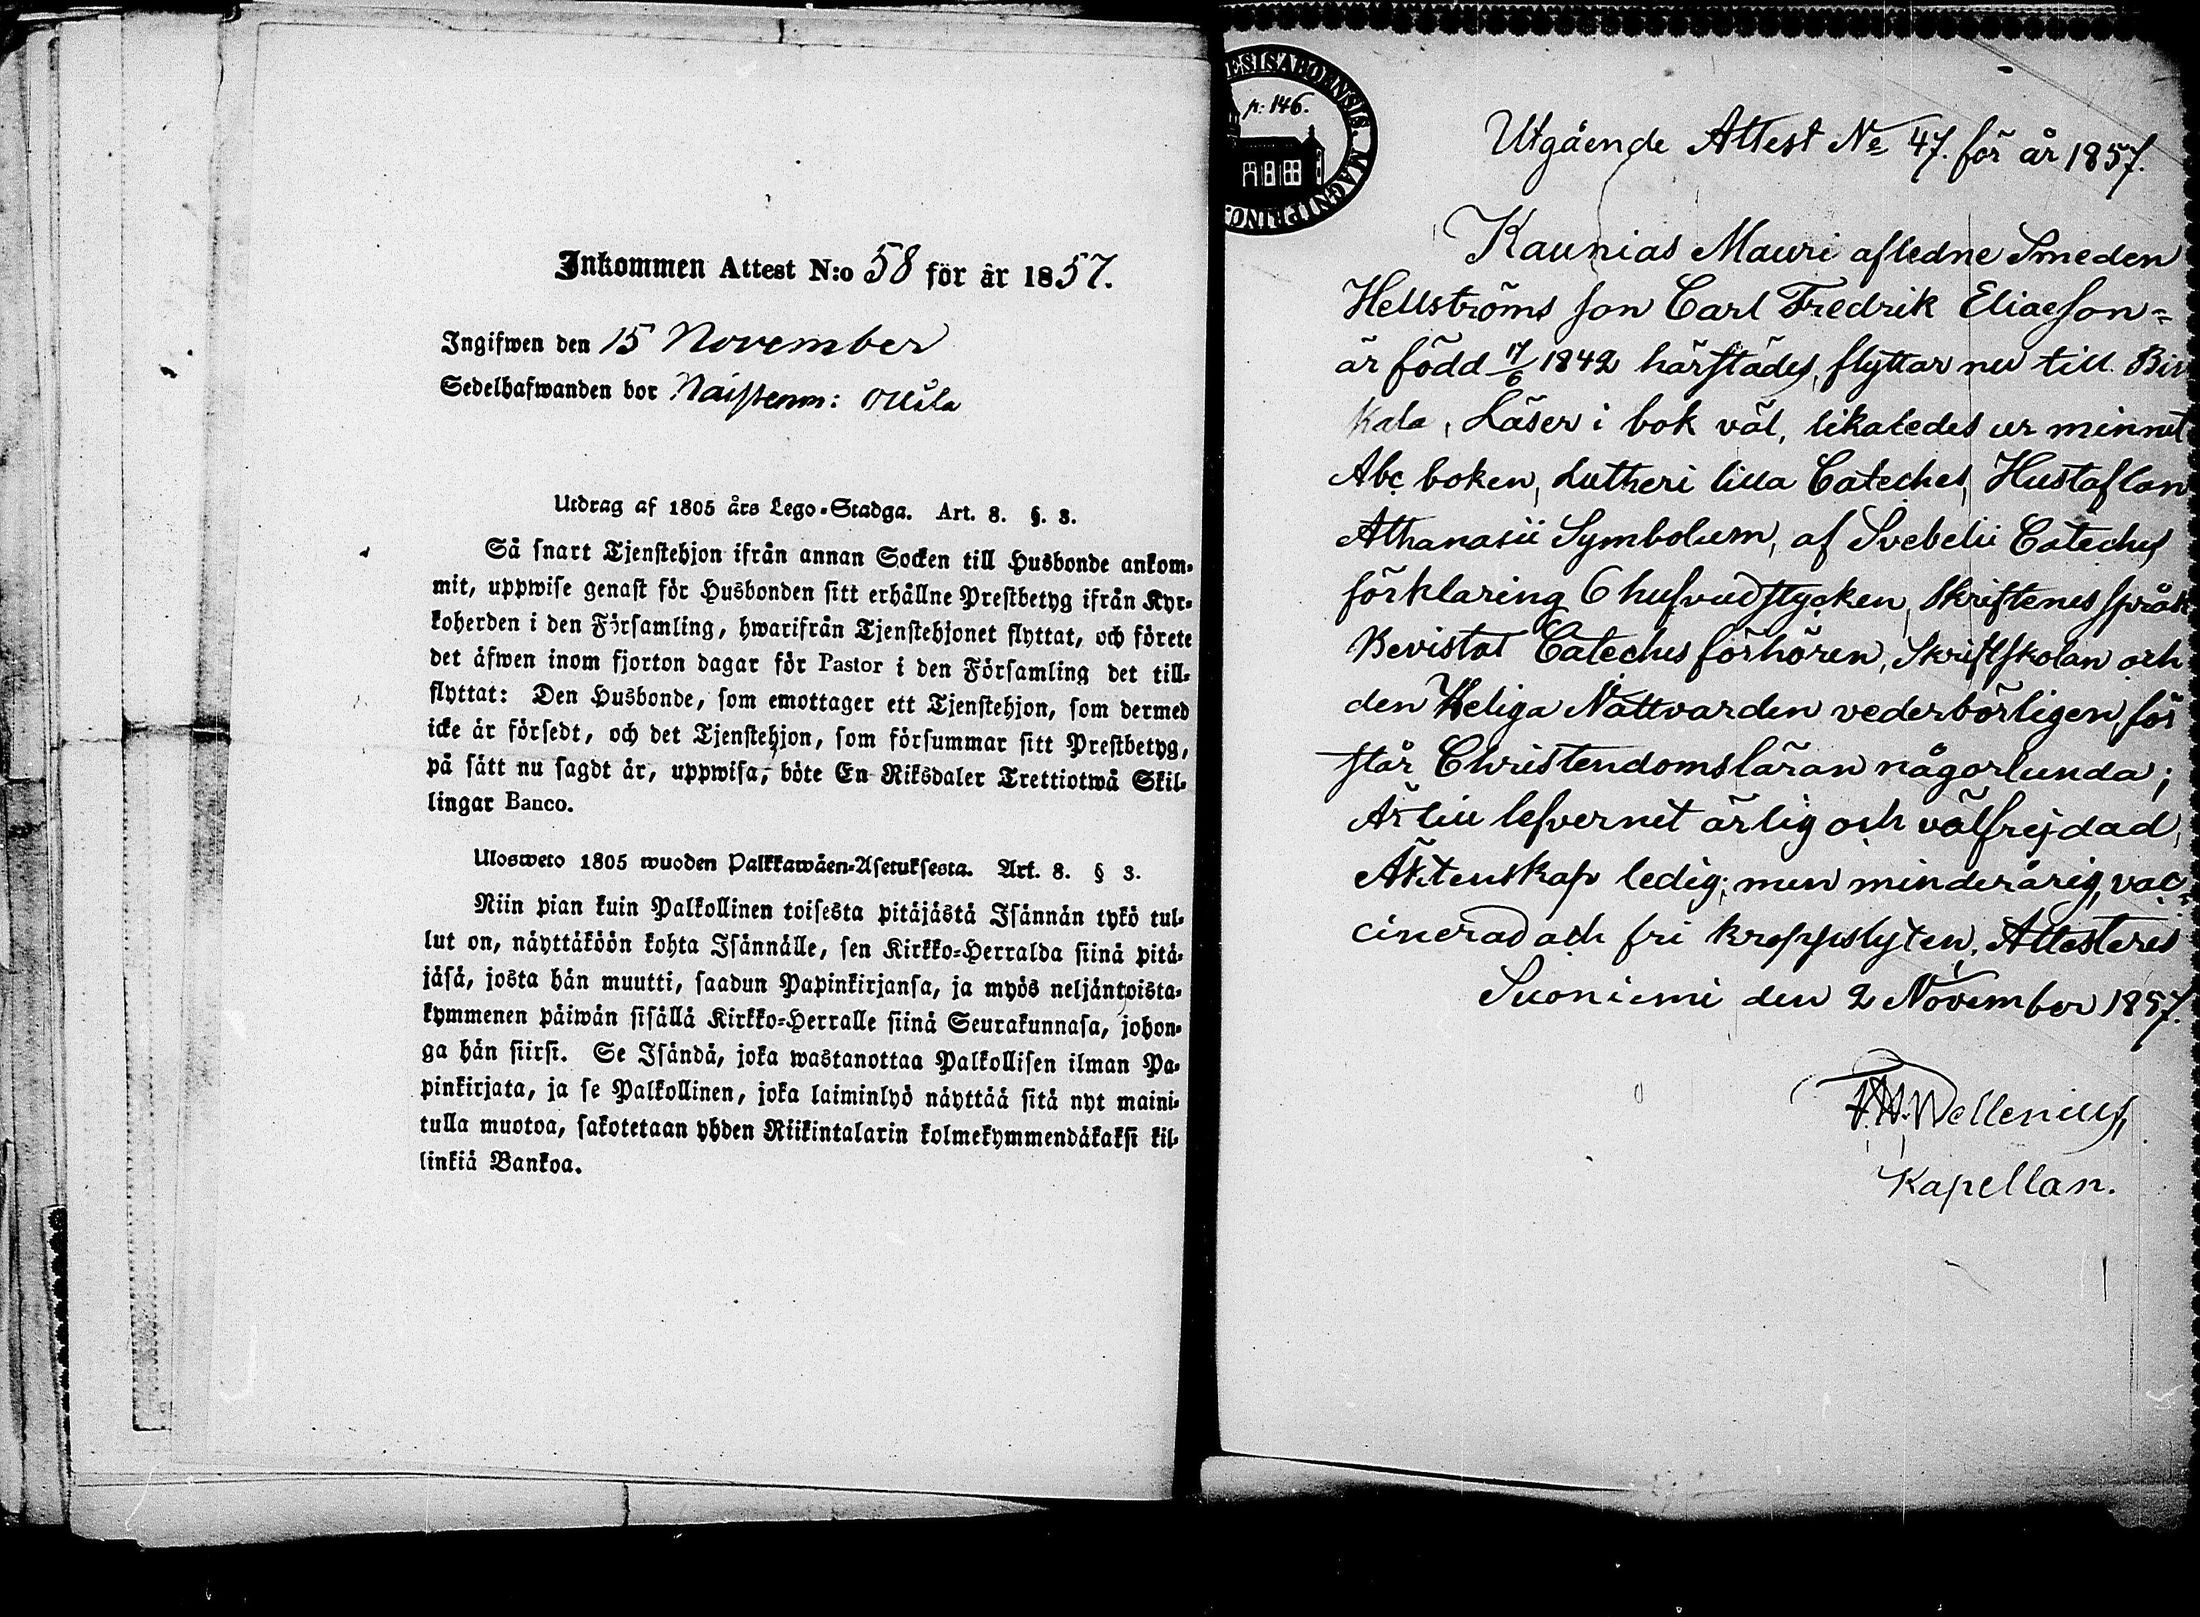 Inkommen Attest N:o 58 för år 1857.
Ingifwen den 15 November
Sedelhafwanden bor Naistenm: Ollila
Utdrag af 1805 års Lego-Stadga. Art. 8. §. 3.
Så snart Tjenstehjon ifrån annan Socken till Husbonde ankom-
mit, uppwise genast för Husbonden sitt erhållne Prestbetyg ifrån Kyr-
koherden i den Församling, hwarifrån Tjenstehjonet flyttat, och förete
det äfwen inom fjorton dagar för Pastor i den Församling det till-
flyttat: Den Husbonde, som emottager ett Tjenstehjon, som dermed
icke är försedt, och det Tjenstehjon, som försummar sitt Prestbetyg,
på sätt nu sagdt är, uppwisa, böte En Riksdaler Trettiotwå Skil-
lingar Banco.
Ulosweto 1805 wuoden Palkkawäen-Asetuksesta. Art. 8. § 3.
Niin pian kuin Palkollinen toisesta pitäjästä Isännän tykö tul-
lut on, näyttäköön kohta Isännälle, sen Kirkko-Herralda siinä pitä-
jäsä, josta hän muutti, saadun Papinkirjansa, ja myös neljäntoista-
kymmenen päiwän sisällä Kirkko-Herralle siinä Seurakunnasa, johon-
ga hän siirsi. Se Isändä, joka wastanottaa Palkollisen ilman Pa-
pinkirjata, ja se Palkollinen, joka laiminlyö näyttää sitä nyt maini-
tulla muotoa, sakotetaan yhden Riikintalarin kolmekymmendäkaksi kil-
linkiä Bankoa.
ESIS ABOENSIS. MAGNI PRINC
p. 146.
Utgående Attest No 47. för år 1857.
Kaunias Mauri afledne Smeden
Hellströms son Carl Fredrik Eliaeson=
är född 17/6 1842 härstädes, flyttar nu till Bir
kala, Läser i bok väl, likaledes ur minnet
Abc boken, Lutheri lilla Cateches, Hustaflan
Athanasii Symbolum, af Svebelii Cateches
förklaring 6 hufvudstycken, Skriftenes språk
Bevistat Cateches förhören, Skriftskolan och
den Heliga Nattvarden vederbörligen, för
står Christendomsläran någorlunda;
Är till lefvernet ärlig och välfrejdad,
Äktenskap ledig; men minderårig, vac-
cinerad och fri kroppslyten. Attesteres
Suoniemi den 2 November 1857.
Wellenius,
Kapellan.